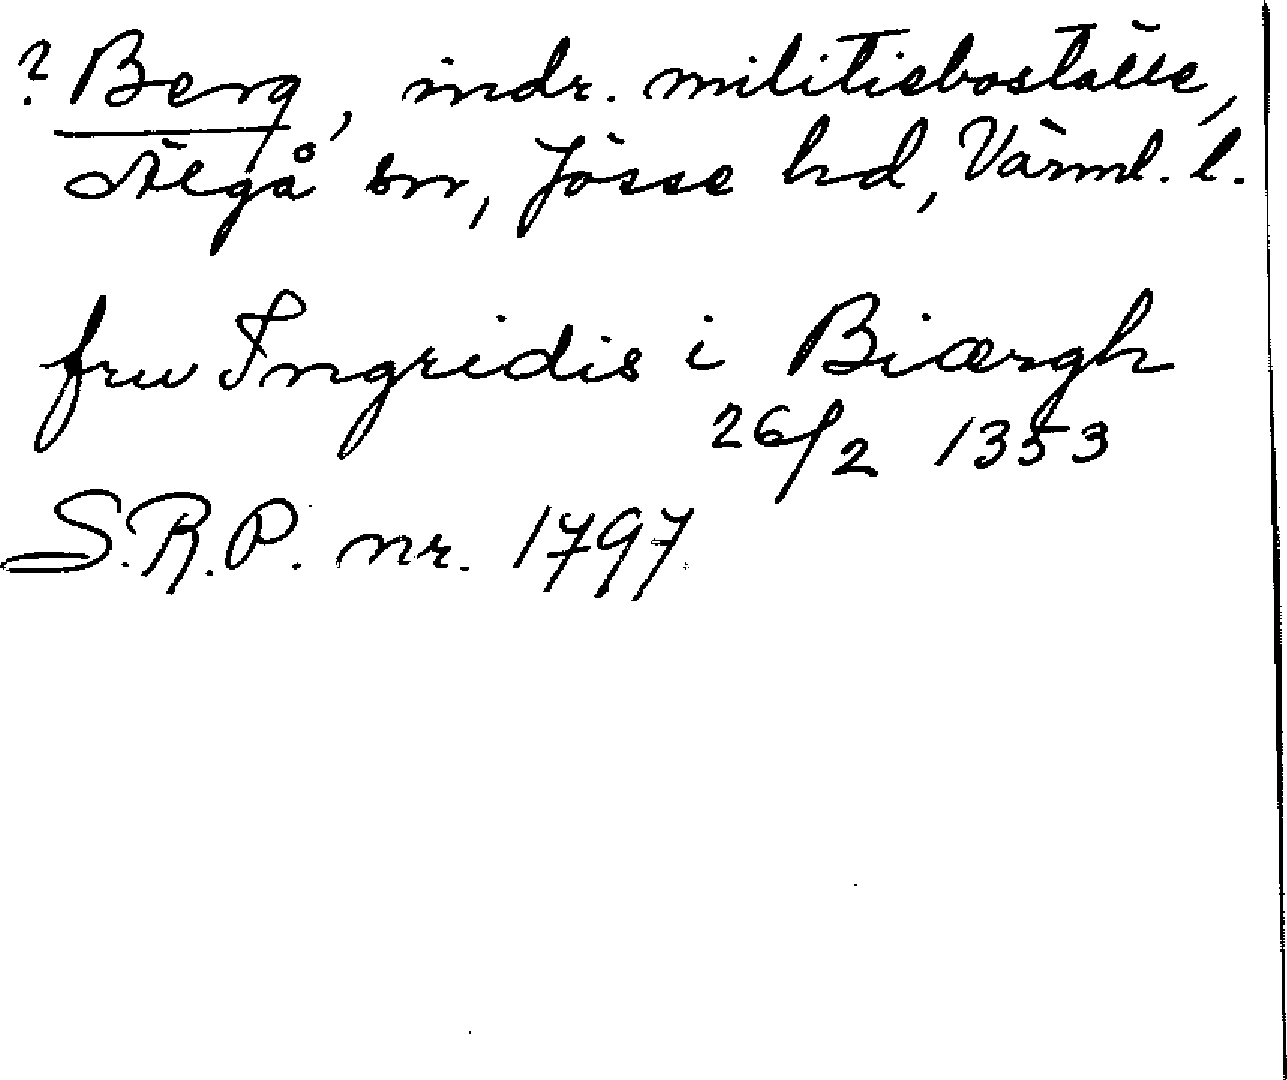 ? Berg, indr. militieboställe,
Älgå sn, Jösse hd, Värml. l.
fru Ingridis i Biærgh
26/2 1353
S.R.P. nr. 1797